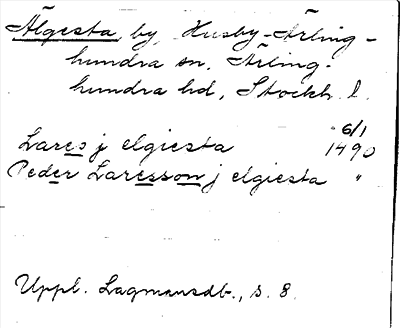 Älgesta, by, Husby-Ärling-
hundra sn, Ärling-
hundra hd, Stockh. l.
6/1
Lares j elgiesta 1490
Peder Laresson j elgiesta "
Uppl. Lagmansdb., s. 8.